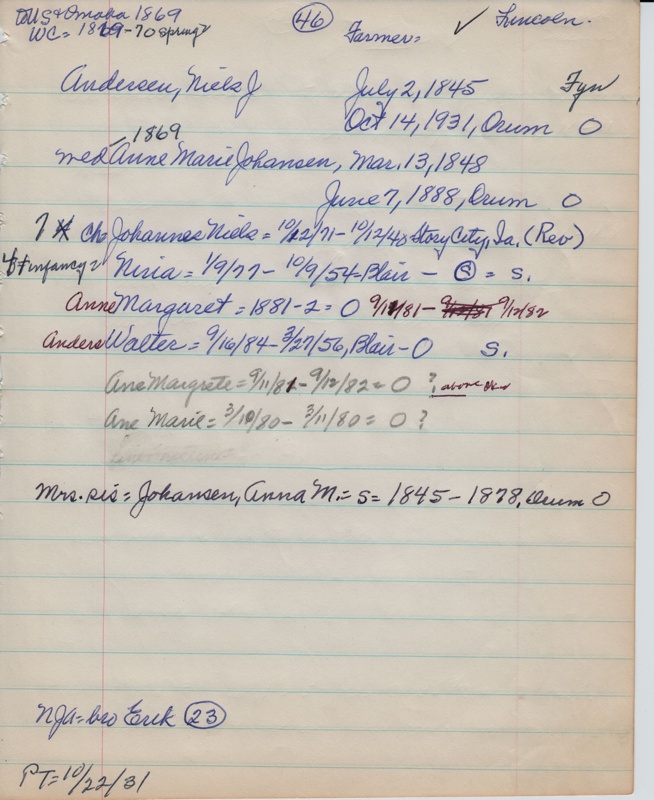 US & Omaha 1869 (46) ✓ Lincoln.
WC = 1869-70 spring? Farmer =
Andersen, Niels J July 2, 1845 Fyn
Oct 14, 1931, Orum O
1869
wed Anne Marie Johansen, Mar. 13, 1848
June 7, 1888, Orum O
7 Ch Johannes Niels = 10/12/71 - 10/12/48 Story City, Ia. (Rev)
infancy? Niria = 1/9/77 - 10/9/54 - Blair - (S) = S.
Anne Margaret = 1881-2 = O 9/11/81 - 9/12/82
Anders Walter = 9/16/84 - 3/27/56, Blair - O S.
Ane Margrete = 9/11/81 - 9/12/82 = O ? above
Ane Marie = 3/10/80 - 3/11/80 = O ?
Mrs. sis = Johansen, Anna M. = S = 1845 - 1878, Orum O
NJA = bro Erik (23)
PT = 10/22/31